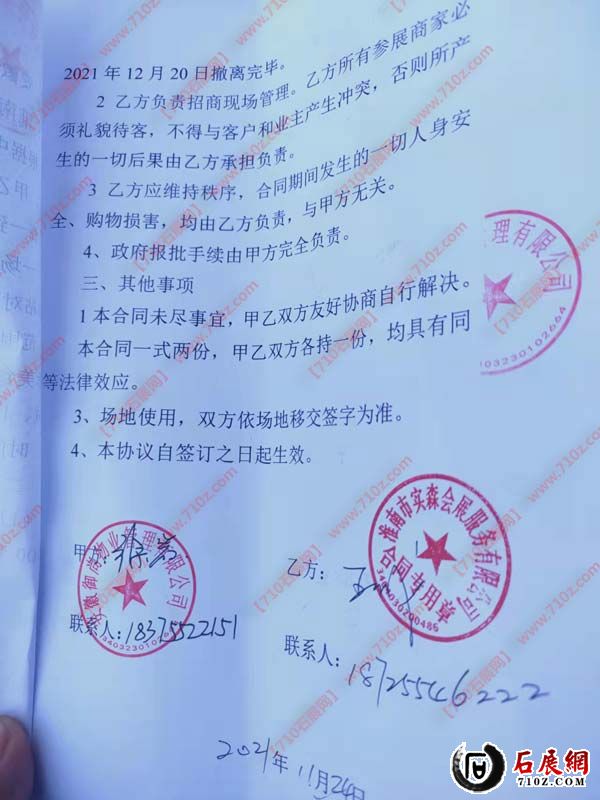 2021 年 12 月 20 日撤离完毕。
2 乙方负责招商现场管理。乙方所有参展商家必
须礼貌待客，不得与客户和业主产生冲突，否则所产
生的一切后果由乙方承担负责。
3 乙方应维持秩序，合同期间发生的一切人身安
全、购物损害，均由乙方负责，与甲方无关。
4、政府报批手续由甲方完全负责。
三、其他事项
1 本合同未尽事宜，甲乙双方友好协商自行解决。
本合同一式两份，甲乙双方各持一份，均具有同
等法律效应。
3、场地使用，双方依场地移交签字为准。
4、本协议自签订之日起生效。
理有限公司
3403230102664
甲方：
物业管理有限公司
3403230102664
联系人：18375522151
乙方：
淮南市实森会展服务有限公司
合同专用章
联系人：18725546222
2021年11月24日
【710石展网】www.710z.com
石展網
www.710z.com